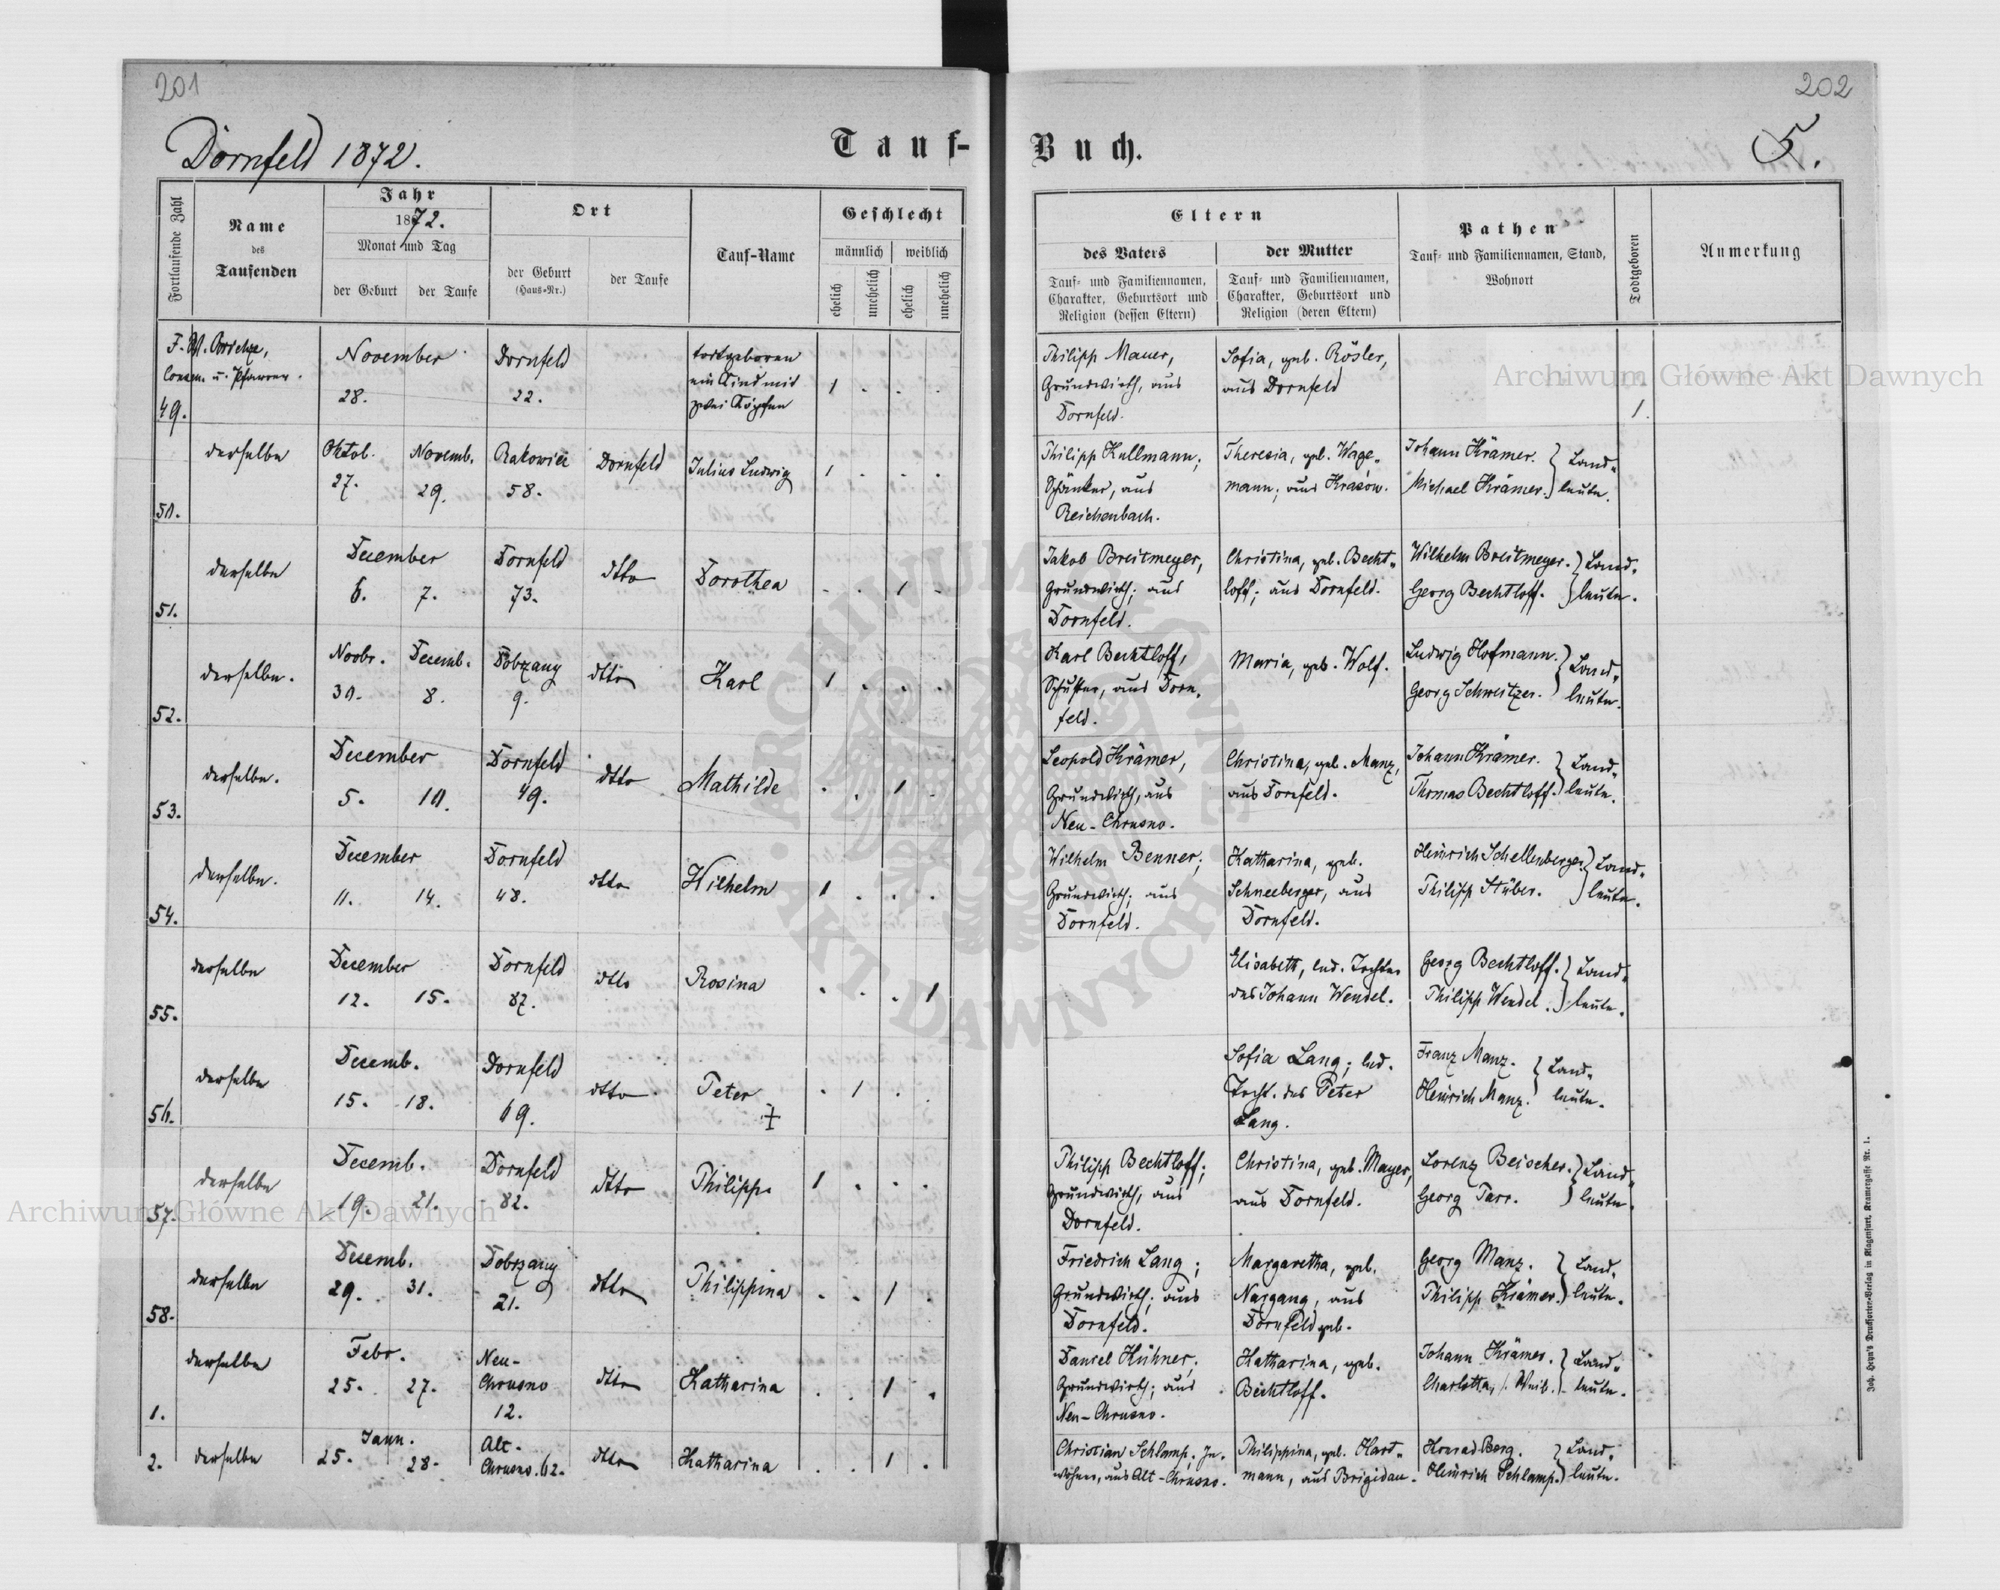 201
202
Dornfeld 1872.
Tauf-
Buch.
5.
Fortlaufende Zahl
Name
des
Taufenden
Jahr
1872.
Monat und Tag
der Geburt
der Taufe
Ort
der Geburt
(Haus-Nr.)
der Taufe
Tauf-Name
Geschlecht
männlich
weiblich
ehelich
unehelich
ehelich
unehelich
Eltern
des Vaters
Tauf- und Familiennamen,
Charakter, Geburtsort und
Religion (dessen Eltern)
der Mutter
Tauf- und Familiennamen,
Charakter, Geburtsort und
Religion (deren Eltern)
Pathen
Tauf- und Familiennamen, Stand,
Wohnort
Todtgeboren
Anmerkung
49.
u. Pfarrer.
November
28.
Dornfeld
22.
todtgeboren
ein Kind mit
zwei Köpfen
1 . . .
Philipp Mauer,
Grundwirth, aus
Dornfeld.
Sofia, geb. Rösler,
aus Dornfeld
1.
50.
derselbe
Oktob. Novemb.
27. 29.
Rakowiec
58.
Dornfeld
Julius Ludwig
1 . . .
Philipp Kullmann;
Schänker, aus
Reichenbach.
Theresia, geb. Wage-
mann; aus Krasow.
Johann Krämer.
Michael Krämer.
Land-
leute.
51.
derselbe
December
6. 7.
Dornfeld
73.
dtto
Dorothea
. . 1 .
Jakob Breitmeyer,
Grundwirth; aus
Dornfeld.
Christina, geb. Becht-
loff; aus Dornfeld.
Wilhelm Breitmeyer.
Georg Bechtloff.
Land-
leute.
52.
derselbe.
Novbr. Decemb.
30. 8.
Dobrzany
9.
dtto
Karl
1 . . .
Karl Bechtloff,
Schuster, aus Dorn-
feld.
Maria, geb. Wolf.
Ludwig Hofmann.
Georg Schweitzer.
Land-
leute.
53.
derselbe.
December
5. 10.
Dornfeld
49.
dtto
Mathilde
. . 1 .
Leopold Krämer,
Grundwirth, aus
Neu-Chrusno.
Christina, geb. Manz,
aus Dornfeld.
Johann Krämer.
Thomas Bechtloff.
Land-
leute.
54.
derselbe.
December
11. 14.
Dornfeld
48.
dtto
Wilhelm
1 . . .
Wilhelm Benner;
Grundwirth; aus
Dornfeld.
Katharina, geb.
Schneeberger, aus
Dornfeld.
Heinrich Schellenberger
Philipp Stüber.
Land-
leute.
55.
derselbe
December
12. 15.
Dornfeld
87.
dtto
Rosina
. . . 1
Elisabeth, led. Tochter
des Johann Wendel.
Georg Bechtloff.
Philipp Wendel.
Land-
leute.
56.
derselbe
Decemb.
15. 18.
Dornfeld
69.
dtto
Peter
. 1 . .
Sofia Lang; led.
Tocht. des Peter
Lang.
Franz Manz.
Heinrich Manz.
Land-
leute.
57.
derselbe
Decemb.
19. 21.
Dornfeld
82.
dtto
Philipp.
1 . . .
Philipp Bechtloff;
Grundwirth, aus
Dornfeld.
Christina, geb. Mayer,
aus Dornfeld.
Lorenz Beischer.
Georg Tarr.
Land-
leute.
58.
derselbe
Decemb.
29. 31.
Dobrzany
21.
dtto
Philippina
. . 1 .
Friedrich Lang;
Grundwirth; aus
Dornfeld.
Margaretha, geb.
Nargang, aus
Dornfeld geb.
Georg Manz.
Philipp Krämer.
Land-
leute.
1.
derselbe
Febr.
25. 27.
Neu-
Chrusno
12.
dtto
Katharina
. . 1 .
Daniel Hühner,
Grundwirth; aus
Neu-Chrusno.
Katharina, geb.
Bechtloff.
Johann Krämer.
Charlotta, s. Weib.
Land-
leute.
2.
derselbe
Jann.
25. 28.
Alt-
Chrusno. 62.
dtto
Katharina
. . 1 .
Christian Schlamp; In-
wohner, aus Alt-Chrusno.
Philippina, geb. Hart-
mann, aus Brigidau.
Konrad Berg.
Heinrich Schlamp.
Land-
leute.
Joh. Heyn's Drucksorten-Verlag in Klagenfurt, Kramergasse Nr. 1.
Archiwum Główne Akt Dawnych
Archiwum Główne Akt Dawnych
ARCHIWUM GŁÓWNE AKT DAWNYCH